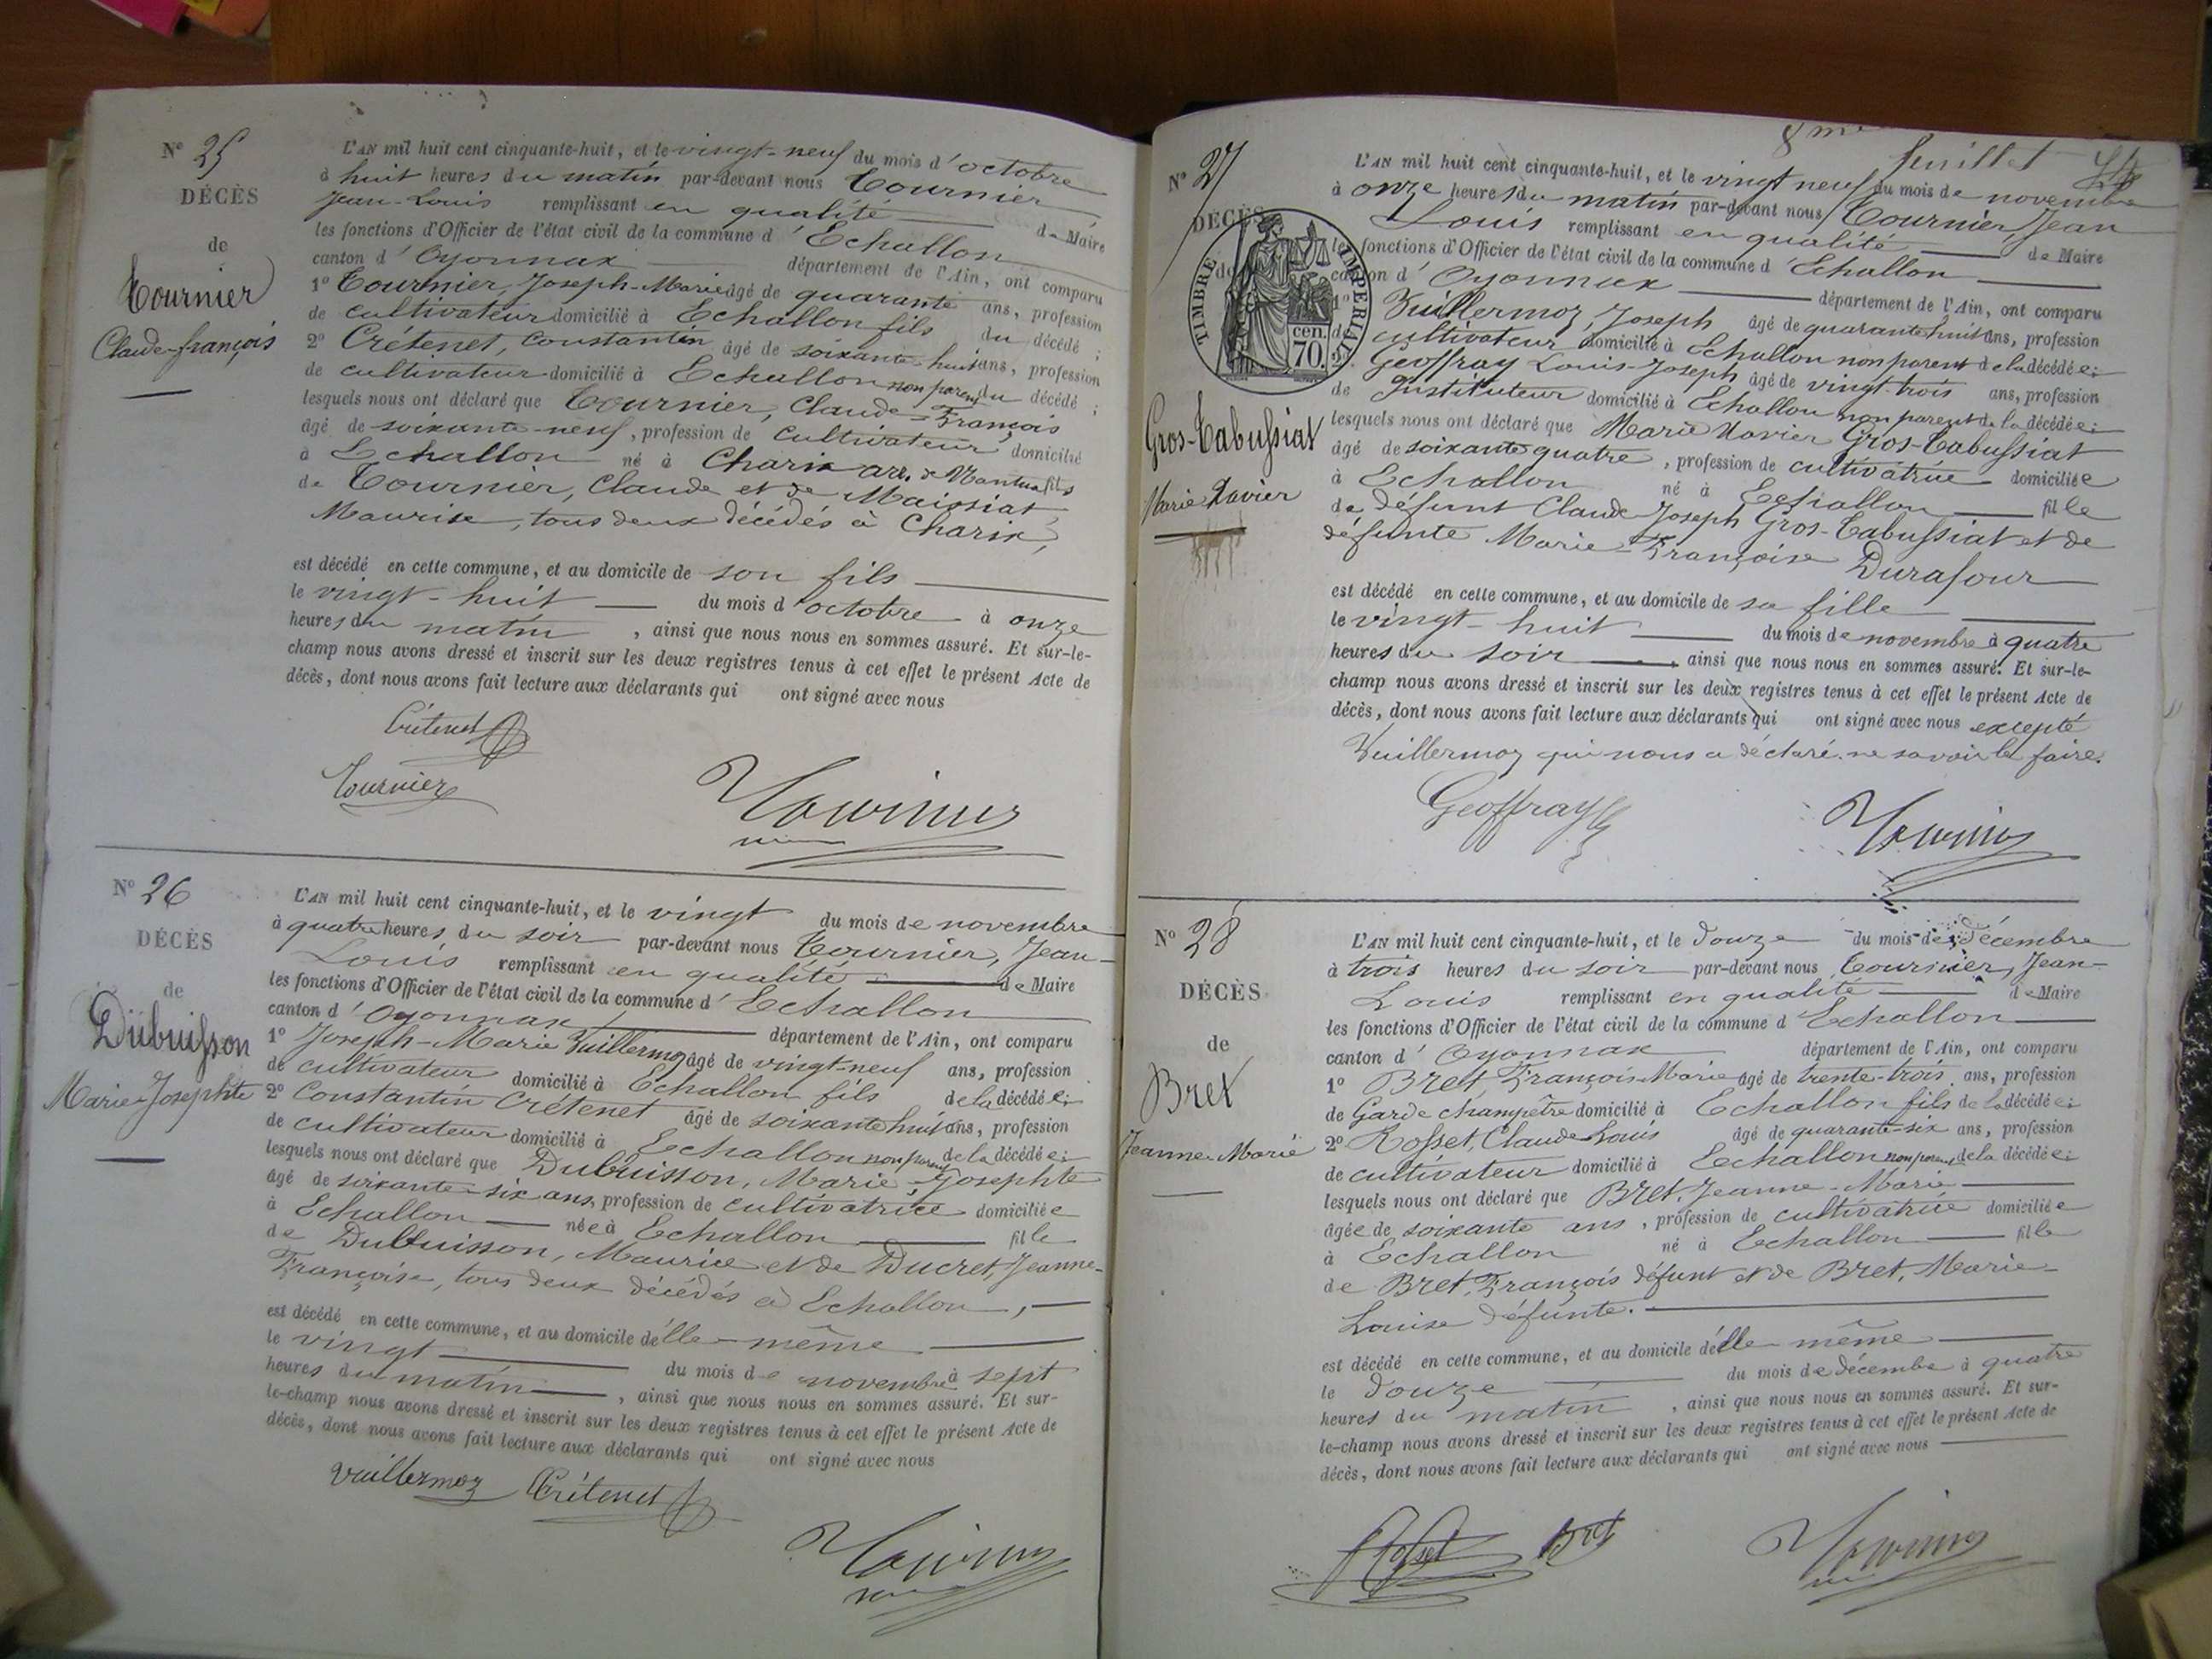 N° 25
DÉCÈS
de
Tournier
Claude-françois
L'AN mil huit cent cinquante-huit, et le vingt-neuf du mois d'octobre
à huit heures du matin par-devant nous Tournier
Jean-Louis remplissant en qualité de Maire
les fonctions d'Officier de l'état civil de la commune d'Echallon
canton d'Oyonnax département de l'Ain, ont comparu
1° Tournier, Joseph-Marie âgé de quarante ans, profession
de cultivateur domicilié à Echallon fils du décédé ;
2° Crétenet, Constantin âgé de soixante-huit ans, profession
de cultivateur domicilié à Echallon non parent du décédé ;
lesquels nous ont déclaré que Tournier, Claude-François
âgé de soixante-neuf, profession de cultivateur domicilié
à Echallon né à Charix arr. de Nantua fils
de Tournier, Claude et de Maissiat
Maurise, tous deux décédés à Charix,
est décédé en cette commune, et au domicile de son fils
le vingt-huit du mois d'octobre à onze
heures du matin, ainsi que nous nous en sommes assuré. Et sur-le-
champ nous avons dressé et inscrit sur les deux registres tenus à cet effet le présent Acte de
décès, dont nous avons fait lecture aux déclarants qui ont signé avec nous
Crétenet
Tournier
Tournier
N° 26
DÉCÈS
de
Dubuisson
Marie-Josephte
L'AN mil huit cent cinquante-huit, et le vingt du mois de novembre
à quatre heures du soir par-devant nous Tournier, Jean-
Louis remplissant en qualité de Maire
les fonctions d'Officier de l'état civil de la commune d'Echallon
canton d'Oyonnax département de l'Ain, ont comparu
1° Joseph-Marie Vuillermoz âgé de vingt-neuf ans, profession
de cultivateur domicilié à Echallon fils de la décédée ;
2° Constantin Crétenet âgé de soixante huit ans, profession
de cultivateur domicilié à Echallon non parent de la décédée ;
lesquels nous ont déclaré que Dubuisson, Marie-Josephte
âgé de soixante-six ans, profession de cultivatrice domiciliée
à Echallon née à Echallon fille
de Dubuisson, Maurice et de Ducret, Jeanne-
Françoise, tous deux décédés à Echallon,
est décédé en cette commune, et au domicile d'elle-même
le vingt du mois de novembre à sept
heures du matin, ainsi que nous nous en sommes assuré. Et sur-
le-champ nous avons dressé et inscrit sur les deux registres tenus à cet effet le présent Acte de
décès, dont nous avons fait lecture aux déclarants qui ont signé avec nous
Vuillermoz Crétenet
Tournier
8me feuillet
N° 27
DÉCÈS
de
TIMBRE IMPERIAL
70 cen.
Gros-Tabussiat
Marie Xavier
L'AN mil huit cent cinquante-huit, et le vingt neuf du mois de novembre
à onze heures du matin par-devant nous Tournier, Jean
Louis remplissant en qualité de Maire
les fonctions d'Officier de l'état civil de la commune d'Echallon
canton d'Oyonnax département de l'Ain, ont comparu
1° Vuillermoz, Joseph âgé de quarante huit ans, profession
de cultivateur domicilié à Echallon non parent de la décédée ;
Geoffray Louis-Joseph âgé de vingt-trois ans, profession
de Instituteur domicilié à Echallon non parent de la décédée ;
lesquels nous ont déclaré que Marie Xavier Gros-Tabussiat
âgé de soixante quatre, profession de cultivatrice domiciliée
à Echallon né à Echallon fille
de défunt Claude Joseph Gros-Tabussiat et de
défunte Marie-Françoise Durafour
est décédé en cette commune, et au domicile de sa fille
le vingt-huit du mois de novembre à quatre
heures du soir, ainsi que nous nous en sommes assuré. Et sur-le-
champ nous avons dressé et inscrit sur les deux registres tenus à cet effet le présent Acte de
décès, dont nous avons fait lecture aux déclarants qui ont signé avec nous excepté
Vuillermoz qui nous a déclaré ne savoir le faire.
Geoffray
Tournier
N° 28
DÉCÈS
de
Bret
Jeanne-Marie
L'AN mil huit cent cinquante-huit, et le douze du mois de décembre
à trois heures du soir par-devant nous Tournier, Jean-
Louis remplissant en qualité de Maire
les fonctions d'Officier de l'état civil de la commune d'Echallon
canton d'Oyonnax département de l'Ain, ont comparu
1° Bret, François-Marie âgé de trente-trois ans, profession
de Garde champêtre domicilié à Echallon fils de la décédée ;
2° Rosset, Claude Louis âgé de quarante-six ans, profession
de cultivateur domicilié à Echallon non parent de la décédée ;
lesquels nous ont déclaré que Bret, Jeanne-Marie
âgée de soixante ans, profession de cultivatrice domiciliée
à Echallon né à Echallon fille
de Bret, François défunt et de Bret, Marie-
Louise défunte.
est décédé en cette commune, et au domicile d'elle même
le douze du mois de décembre à quatre
heures du matin, ainsi que nous nous en sommes assuré. Et sur-
le-champ nous avons dressé et inscrit sur les deux registres tenus à cet effet le présent Acte de
décès, dont nous avons fait lecture aux déclarants qui ont signé avec nous
Rosset Bret
Tournier